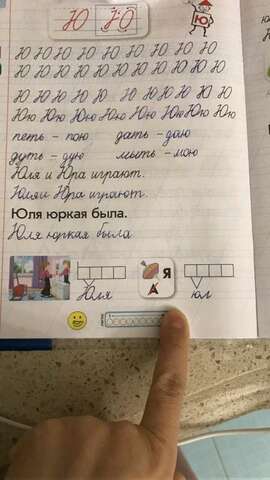 Ю Ю
Ю
Ю Ю Ю Ю Ю Ю Ю Ю Ю
Ю Ю Ю Ю Ю Ю Ю Ю Ю Ю
Ю Ю Ю Ю Ю Ю Ю Ю Ю Ю
Юю Юю Юю Юю Юю Юю Юю Юю
петь - пою дать - даю
дуть - дую мыть - мою
Юля и Юра играют.
Юля и Юра играют.
Юля юркая была.
Юля юркая была
Я
А
Юля
юл